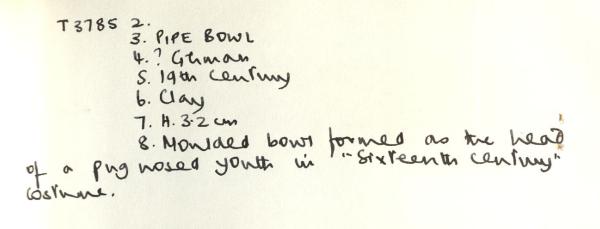 T3785 2.
3. PIPE BOWL
4. ? German
5. 19th century
6. Clay
7. H. 3.2 cm
8. Moulded bowl formed as the head
of a pug nosed youth in "sixteenth century"
costume.